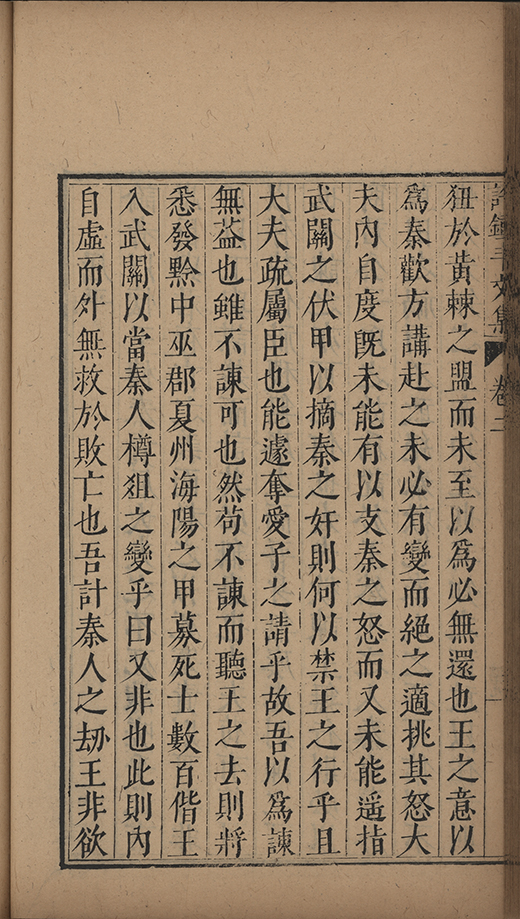 狃於黃棘之盟而未至以爲必無還也王之意以
爲秦歡方講赴之未必有變而絕之適挑其怒大
夫內自度既未能有以支秦之怒而又未能遥指
武關之伏甲以摘秦之奸則何以禁王之行乎且
大夫疏屬臣也能遽奪愛子之請乎故吾以爲諫
無益也雖不諫可也然苟不諫而聽王之去則將
悉發黔中巫郡夏州海陽之甲募死士數百偕王
入武關以當秦人樽俎之變乎曰又非也此則內
自虛而外無救於敗亡也吾計秦人之刼王非欲